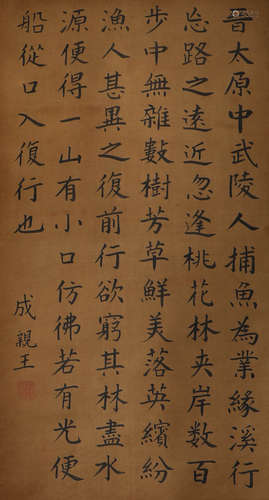 晉太原中武陵人捕魚為業緣溪行
忘路之遠近忽逢桃花林夾岸數百
步中無雜數樹芳草鮮美落英繽紛
漁人甚異之復前行欲窮其林盡水
源便得一山有小口仿佛若有光便
船從口入復行也
成親王